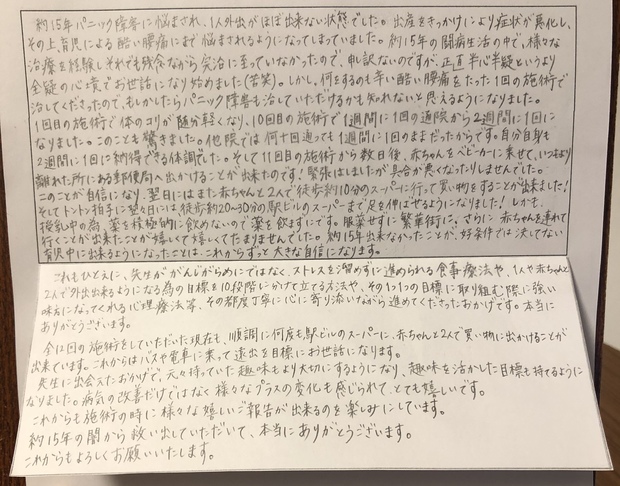 約15年パニック障害に悩まされ、1人外出がほぼ出来ない状態でした。出産をきっかけにより症状が悪化し、
その上育児による酷い腰痛にまで悩まされるようになってしまっていました。約15年の闘病生活の中で、様々な
治療を経験しそれでも残念ながら完治に至っていなかったので、申し訳ないのですが、正直半心半疑というより
全疑の心境でお世話になり始めました(苦笑)。しかし、何をするのも辛い酷い腰痛をたった1回の施術で
治してくださったので、もしかしたらパニック障害も治していただけるかも知れないと思えるようになりました。
1回目の施術で体のコリが随分軽くなり、10回目の施術で1週間に1回の通院から2週間に1回に
なりました。このことも驚きました。他院では何十回通っても1週間に1回のままだったからです。自分自身も
2週間に1回に納得できる体調でした。そして11回目の施術から数日後、赤ちゃんをベビーカーに乗せて、いつもより
離れた所にある郵便局へ出かけることが出来たのです!緊張はしましたが具合が悪くなったりしませんでした。
このことが自信になり、翌日にはまた赤ちゃんと2人で徒歩約10分のスーパーに行って買い物をすることが出来ました!
そしてトントン拍子に翌々日には、徒歩約20~30分の駅ビルのスーパーまで足を伸ばせるようになりました!しかも、
授乳中の為、薬を積極的に飲めないので薬を飲まずにです。服薬せずに繁華街に、さらに赤ちゃんを連れて
行くことが出来たことが嬉しくて嬉しくてたまりませんでした。約15年出来なかったことが、好条件では決してない
育児中に出来るようになったことは、これからずっと大きな自信になります。
これもひとえに、先生ががんじがらめにではなく、ストレスを溜めずに進められる食事療法や、1人や赤ちゃんと
2人で外出出来るようになる為の目標を10段階に分けて立てる方法や、その1つ1つの目標に取り組む際に強い
味方になってくれる心理療法等、その都度丁寧に心に寄り添いながら進めてくださったおかげです。本当に
ありがとうございます。
全12回の施術をしていただいた現在も、順調に何度も駅ビルのスーパーに、赤ちゃんと2人で買い物に出かけることが
出来ています。これからはバスや電車に乗って遠出を目標にお世話になります。
先生に出会えたおかげで、元々持っていた趣味もより大切にするようになり、趣味を活かした目標も持てるように
なりました。病気の改善だけではなく様々なプラスの変化も感じられて、とても嬉しいです。
これからも施術の時に様々な嬉しいご報告が出来るのを楽しみにしています。
約15年の闇から救い出していただいて、本当にありがとうございます。
これからもよろしくお願いいたします。